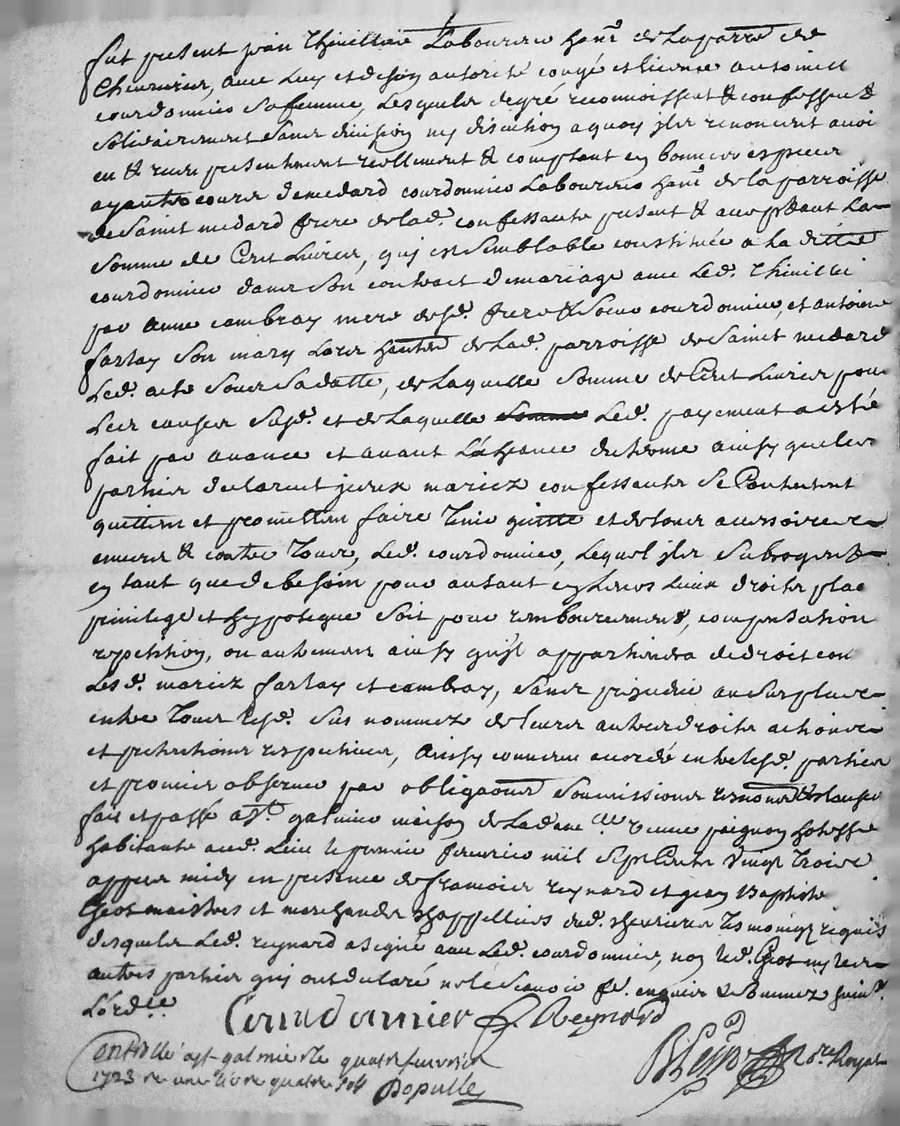 fut présent jean thivillier Laboureur hant de la parre de
Chevrieres, avec luy et de son autorité congé et licence antoinett
courdonnier sa femme, lesquels de gré reconnoissent & confessent
solidairement sans division ny discution a quoy ils renoncent avoir
eu & receu presentement reellement & comptant en bonnes especes
ayants cours de medard courdonnier Laboureur hant de la parroisse
de Saint medard frere de lad. confessante present & acceptant La
somme de Cent Livres, qui est semblable constituée a la ditte
courdonnier dans son contract de mariage avec Led. thivilli
par anne cambray mere desd. frere & soeur courdonnier, et antoine
farlay son mary Lors hantz de lad. parroisse de Saint medard
Led. acte sous sa datte, de laquelle somme de Cent Livres pour
les causes susd. et de laquelle Led. payement a esté
fait par avance et avant L'écheance du terme ainsy que les
parties declarent iceux mariez confessants se Contentent
quittent et promettent faire tenir quitte et de tous accessoires
envers & contre tous, Led. courdonnier, lequel ils subrogent
en tant que de besoin pour autant en leurs lieux droits place
privilege et hypoteque soit pour remboursement, compensation
repetition, ou autrement ainsy qu'il appartiendra de droit con
Lesd. mariez farlay et cambray, sans prejudice au surplus
entre tous lesd. sus nommez de leurs autres droits actions
et pretentions respectives, Ainsy convenu accordé entre lesd. parties
et promis observer par obligaons soumissions renons & clauses
fait et passé a St. galmier maison de la dame ve paignon hotesse
habitante aud. Lieu le premier fevrier mil sept Cents vingt trois
appres midy en presence de françois reynard et jean Baptiste
Giot maistres et marchands chappelliers dud. chevrieres tesmoins requis
desquels Led. reynard a signé avec Led. courdonnier, non led. Giot ny les
autres parties qui ont declaré ne le scavoir fe. enquis & sommez suivt.
L'ordce.
Courdonnier F Reynard
Controllé a St galmier le quatre fevrier
1723 re une livre quatre sols
Populle
Nore Royal